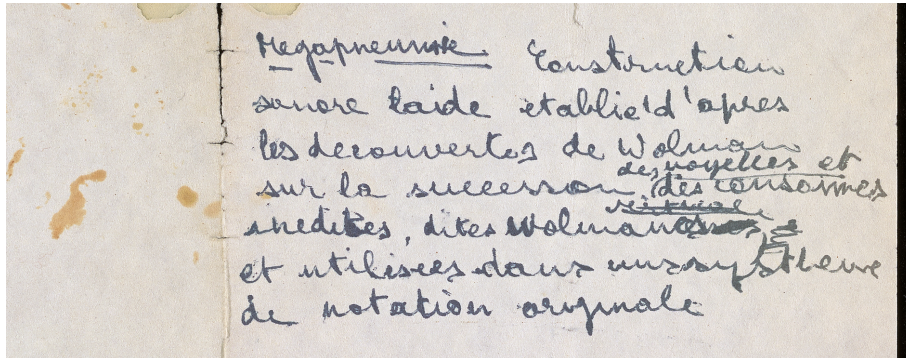 Megapneumie Construction
sonore laide etablie d'apres
les decouvertes de Wolman
des voyelles et
sur la succession des consonnes
inedites, dites Wolman
et utilisées dans un systheme
de notation originale